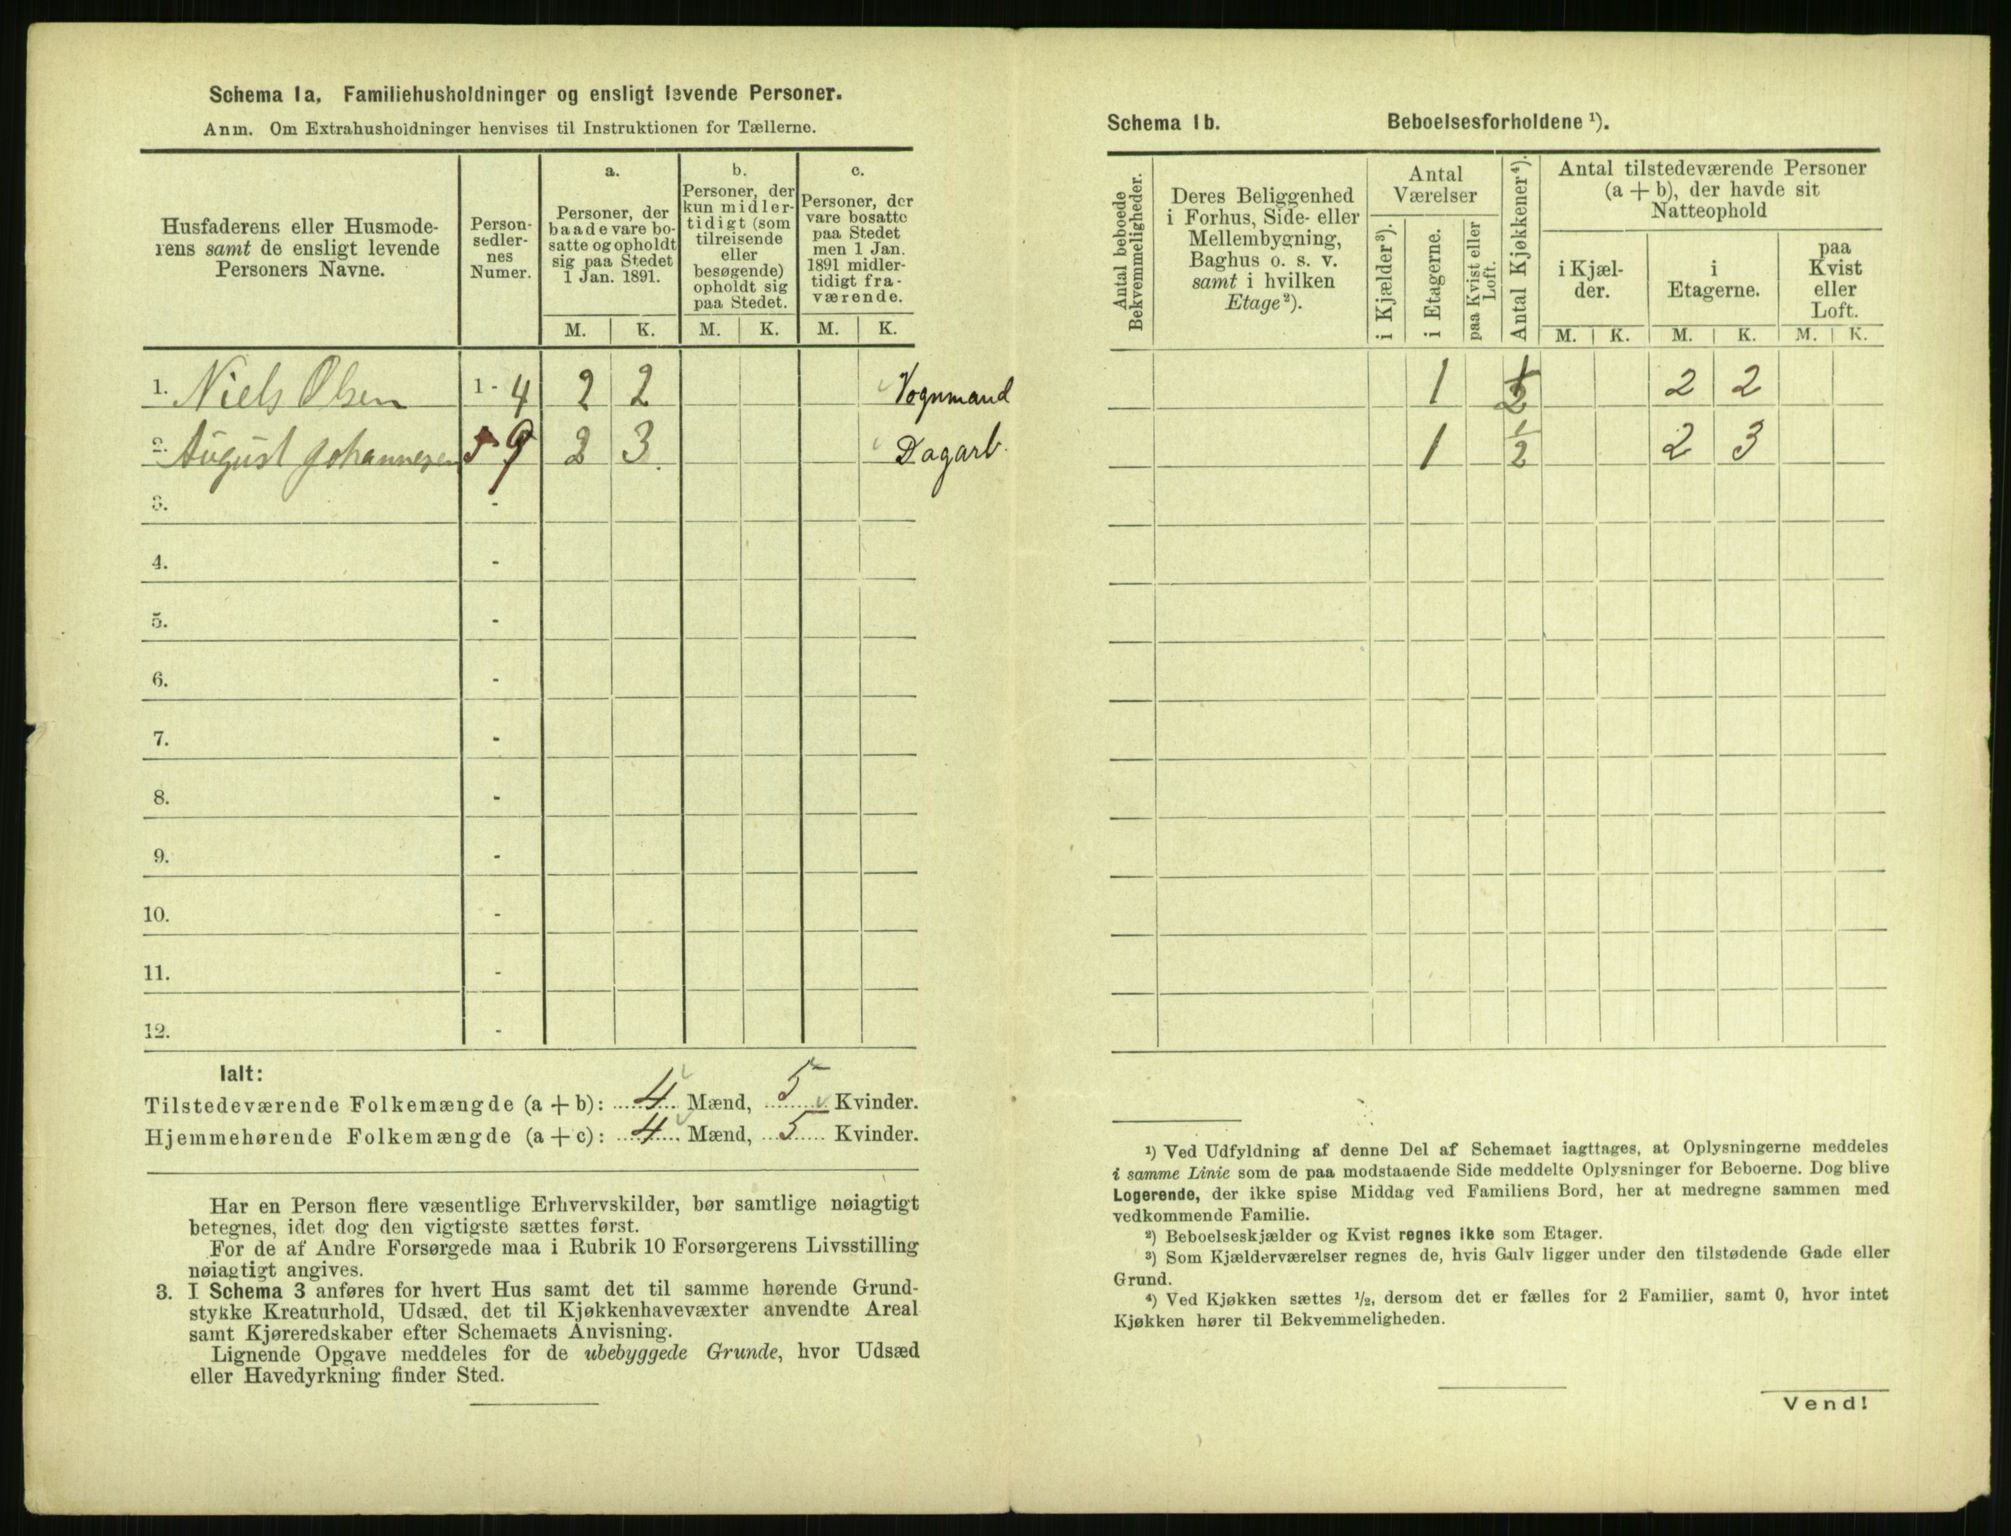 Schema 1a. Familiehusholdninger og ensligt levende Personer.
Anm. Om Extrahusholdninger henvises til Instruktionen for Tællerne.
Husfaderens eller Husmode-
rens samt de ensligt levende
Personers Navne.
Person-
sedler-
nes
Numer.
a.
Personer, der
baade vare bo-
satte og opholdt
sig paa Stedet
1 Jan. 1891.
b.
Personer, der
kun midler-
tidigt (som
tilreisende
eller
besøgende)
opholdt sig
paa Stedet.
c.
Personer, der
vare bosatte
paa Stedet
men 1 Jan.
1891 midler-
tidigt fra-
værende.
M. K. M. K. M. K.
1. Niels Olsen 1 - 4 2 2 Vognmand
2. August Johannesen 5 9 2 3 Dagarb.
3. -
4. -
5. -
6. -
7. -
8. -
9. -
10. -
11. -
12. -
Ialt:
Tilstedeværende Folkemængde (a + b): 4 Mænd, 5 Kvinder.
Hjemmehørende Folkemængde (a + c): 4 Mænd, 5 Kvinder.
Har en Person flere væsentlige Erhvervskilder, bør samtlige nøiagtigt
betegnes, idet dog den vigtigste sættes først.
For de af Andre Forsørgede maa i Rubrik 10 Forsørgerens Livsstilling
nøiagtigt angives.
3. I Schema 3 anføres for hvert Hus samt det til samme hørende Grund-
stykke Kreaturhold, Udsæd, det til Kjøkkenhavevæxter anvendte Areal
samt Kjøreredskaber efter Schemaets Anvisning.
Lignende Opgave meddeles for de ubebyggede Grunde, hvor Udsæd
eller Havedyrkning finder Sted.
Schema 1b. Beboelsesforholdene ¹).
Antal beboede
Bekvemmeligheder.
Deres Beliggenhed
i Forhus, Side- eller
Mellembygning,
Baghus o. s. v.
samt i hvilken
Etage²).
Antal
Værelser
i Kjælder³).
i Etagerne.
paa Kvist eller
Loft.
Antal Kjøkkener⁴).
Antal tilstedeværende Personer
(a + b), der havde sit
Natteophold
i Kjæl-
der.
i
Etagerne.
paa
Kvist
eller
Loft.
M. K. M. K. M. K.
1 ½ 2 2
1 ½ 2 3
¹) Ved Udfyldning af denne Del af Schemaet iagttages, at Oplysningerne meddeles
i samme Linie som de paa modstaaende Side meddelte Oplysninger for Beboerne. Dog blive
Logerende, der ikke spise Middag ved Familiens Bord, her at medregne sammen med
vedkommende Familie.
²) Beboelseskjælder og Kvist regnes ikke som Etager.
³) Som Kjælderværelser regnes de, hvis Gulv ligger under den tilstødende Gade eller
Grund.
⁴) Ved Kjøkken sættes ½, dersom det er fælles for 2 Familier, samt 0, hvor intet
Kjøkken hører til Bekvemmeligheden.
Vend!